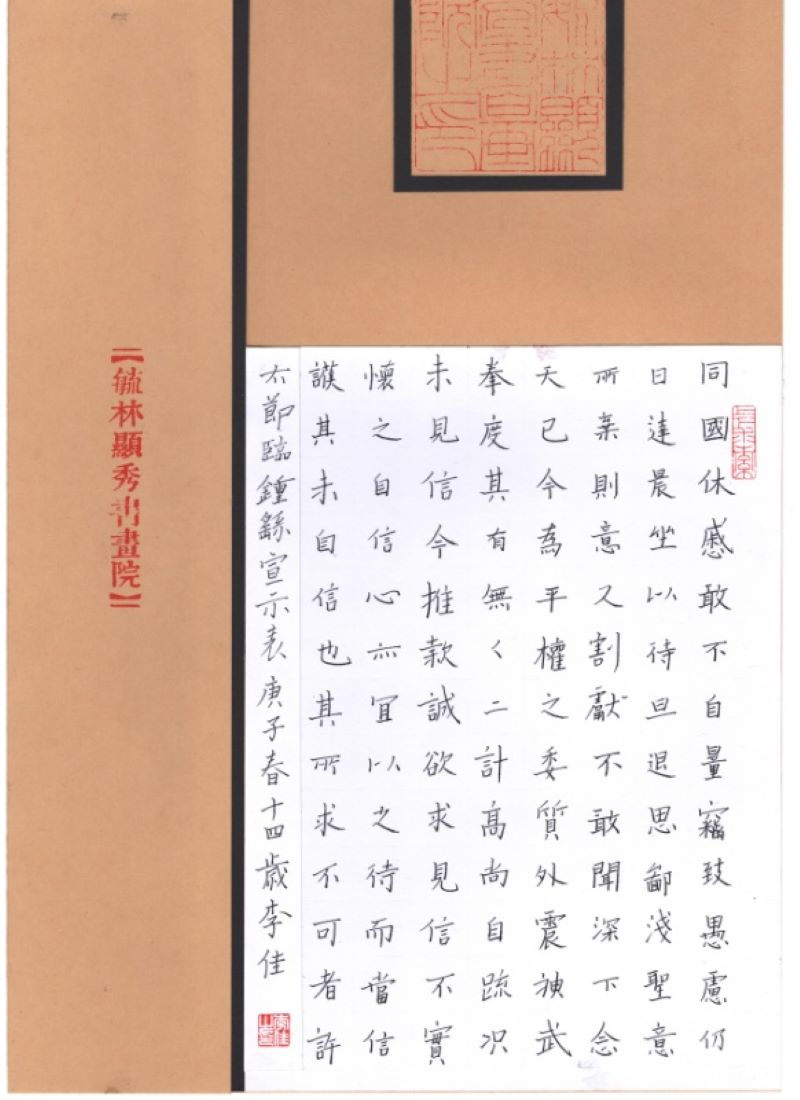 同國休慼敢不自量竊致愚慮仍
日達晨坐以待旦退思鄙淺聖意
所棄則意又割獻不敢聞深下念
天已今為平權之委質外震神武
奉度其有無〻二計高尚自疏况
未見信今推款誠欲求見信不實
懷之自信心亦宜以之待而當信
護其未自信也其所求不可者許
右節臨鍾繇宣示表庚子春十四歲李佳
【毓林顯秀書畫院】